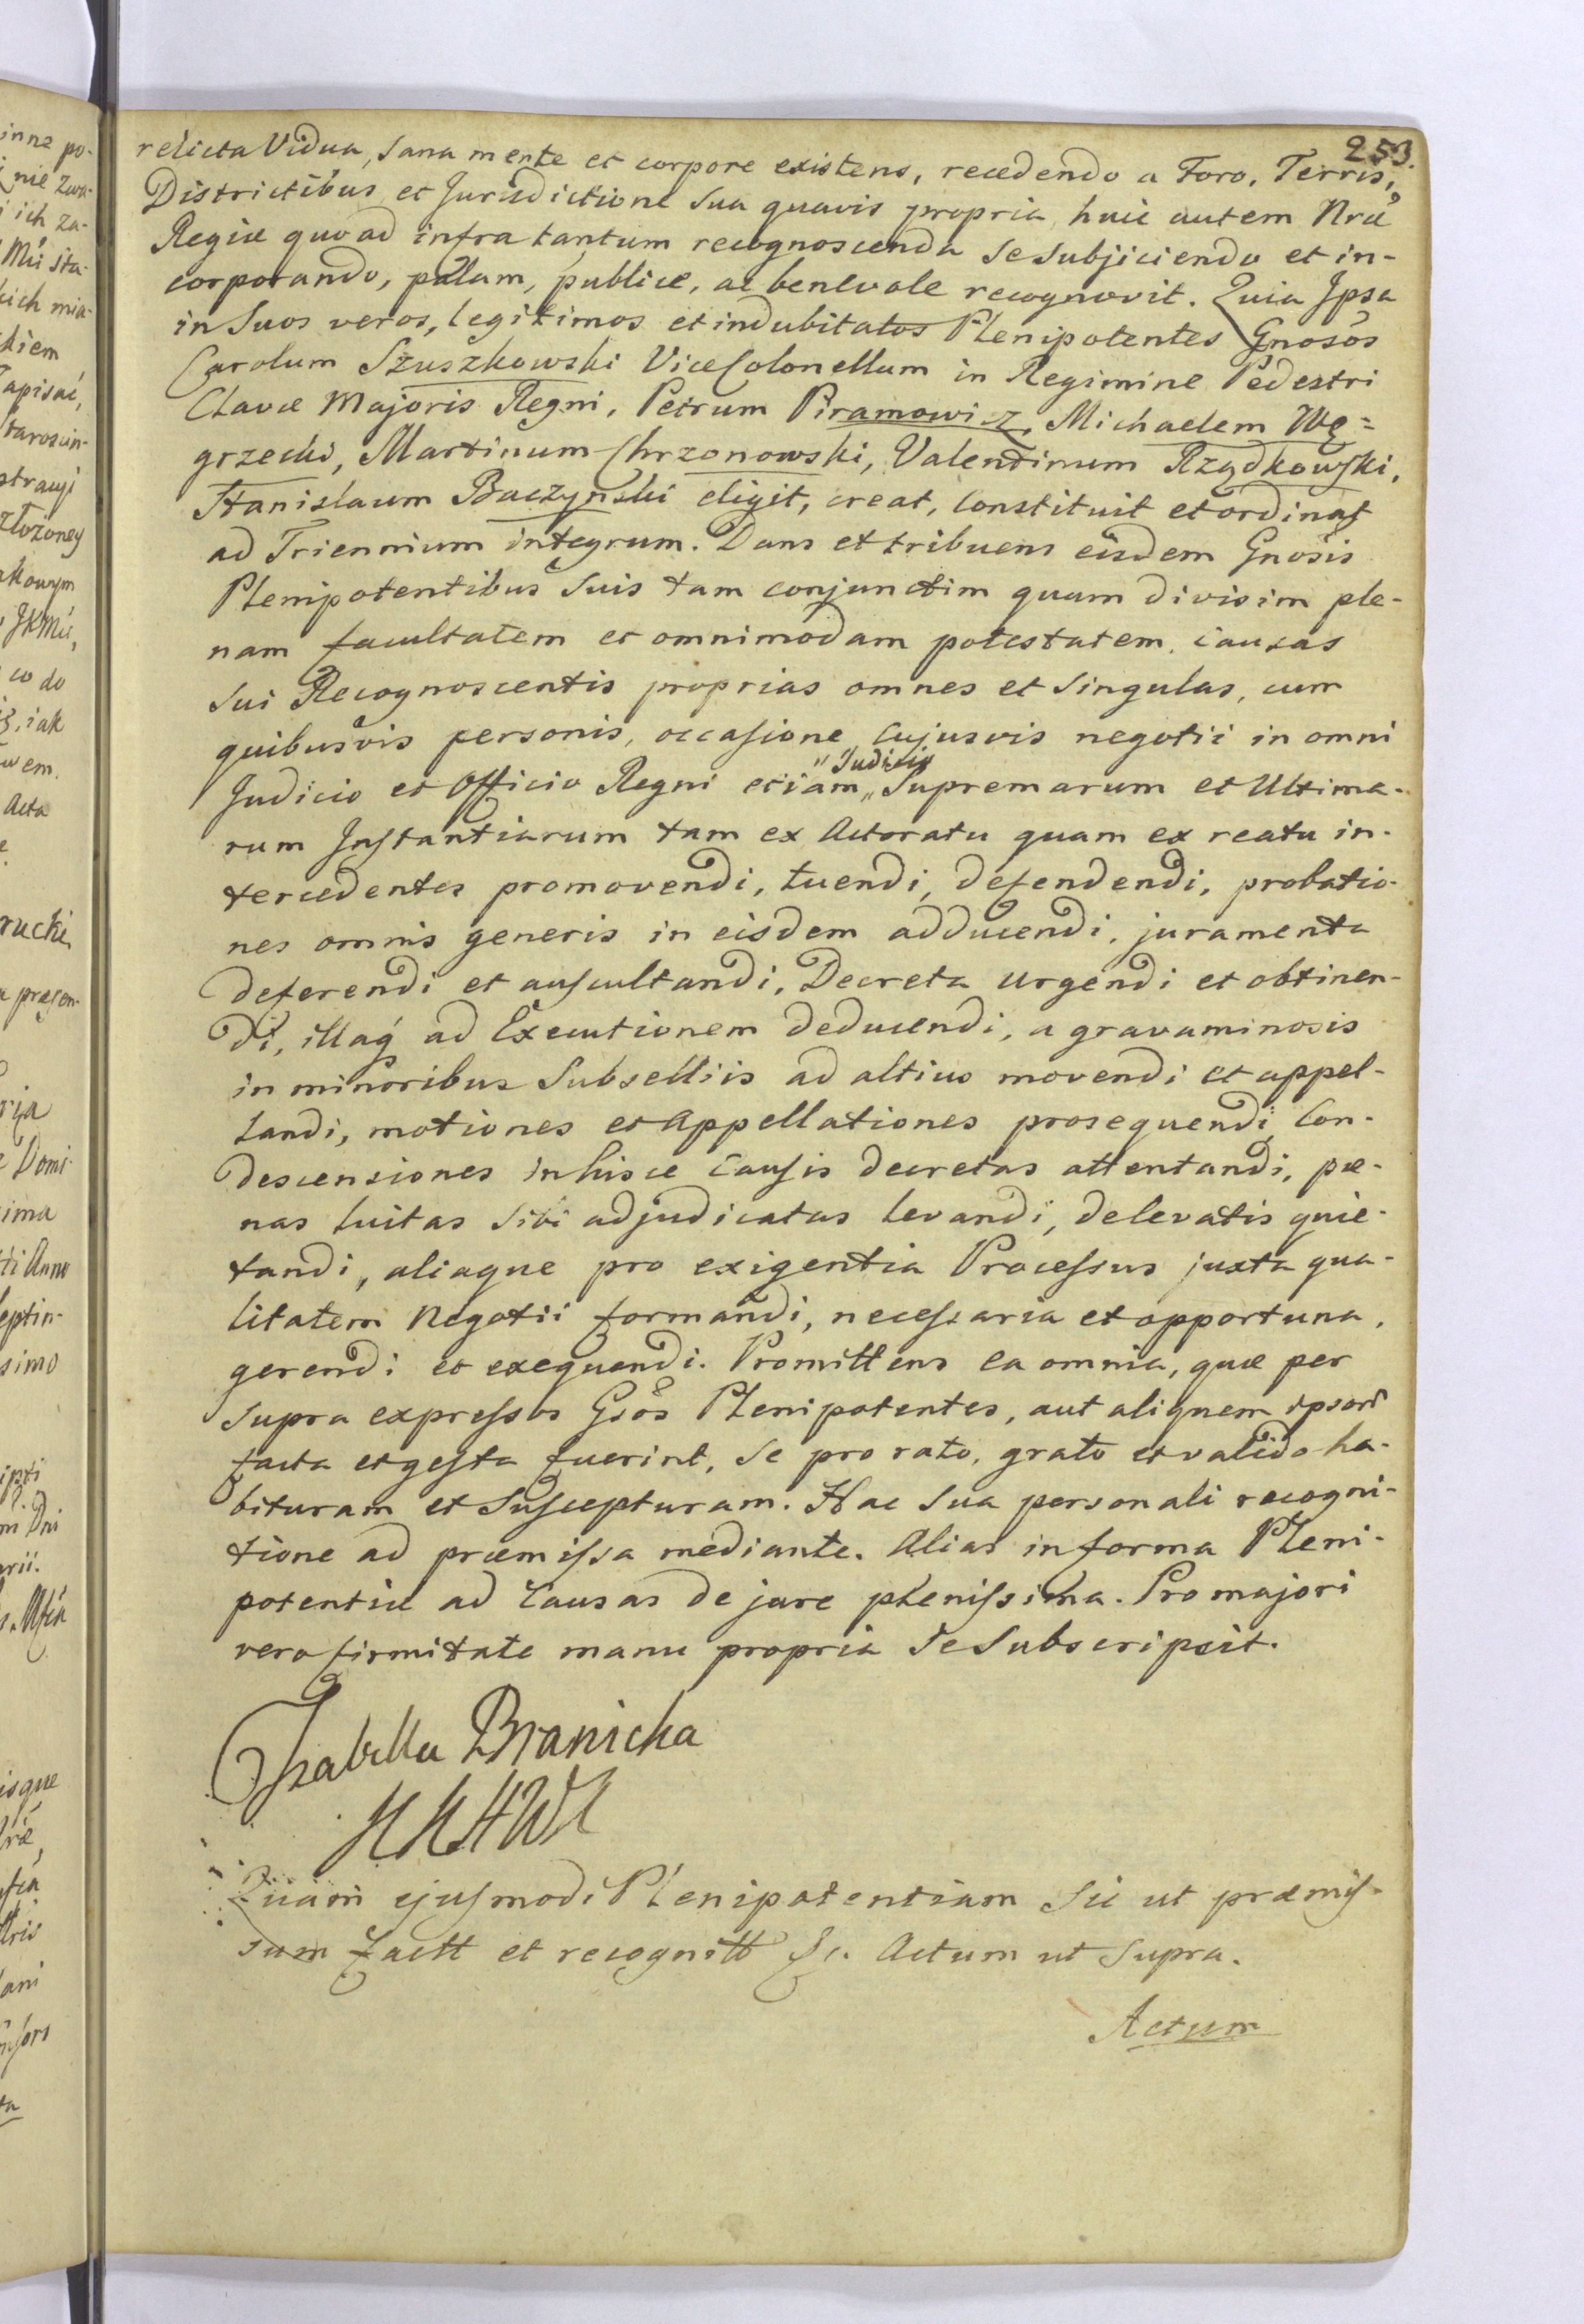 253.
relicta Vidua, sana mente et corpore existens, recedendo a Foro, Terris,
Districtibus et Jurisdictione sua quavis propria, huic autem Nrae
Regiae quoad infra tantum recognoscenda se subjiciendo et in-
corporando, palam, publice, ac benevole recognovit. Quia Ipsa
in Suos veros, legitimos et indubitatos Plenipotentes Gnosos
Carolum Szuszkowski ViceColonellum in Regimine Pedestri
Clavae Majoris Regni, Petrum Piramowicz, Michaelem Wę=
grzecki, Martinum Chrzonowski, Valentinum Rządkowski,
Stanislaum Baczynski eligit, creat, constituit et ordinat
ad Triennium integrum. Dans et tribuens eisdem Gnosis
Plenipotentibus suis tam conjunctim quam divisim ple-
nam facultatem et omnimodam potestatem, causas
sui Recognoscentis proprias omnes et singulas, cum
quibusvis personis, occasione cujusvis negotii in omni
Judicio et Officio Regni etiam „Judicio„ Supremarum et Ultima-
rum Instantiarum tam ex Actoratu quam ex reatu in-
tercedentes promovendi, tuendi, defendendi, probatio-
nes omnis generis in eisdem adducendi, juramenta
deferendi et auscultandi, Decreta urgendi et obtinen-
di, illaq ad Executionem deducendi, a gravaminosis
in minoribus Subselliis ad altius movendi et appel-
landi, motiones et Appellationes prosequendi, Con-
descensiones in hisce Causis decretas attentandi, pae-
nas luitas sibi adjudicatas levandi, de levatis quie-
tandi, aliaque pro exigentia Processus juxta qua-
litatem Negotii formandi, necessaria et opportuna,
gerendi et exequendi. Promittens ea omnia, quae per
supra expressos Gsos Plenipotentes, aut aliquem ipsor
facta et gesta fuerint, se pro rato, grato et valido ha-
bituram et Suscepturam. Hac sua personali recogni-
tione ad praemissa mediante. Alias in forma Pleni-
potentiae ad Causas de jure plenissima. Pro majori
vero firmitate manu propria se subscripsit.
Izabella Branicka
KKHWK
Quam ejusmodi Plenipotentiam sic ut praemis-
sum factt et recognitt &c. Actum ut supra.
Actum